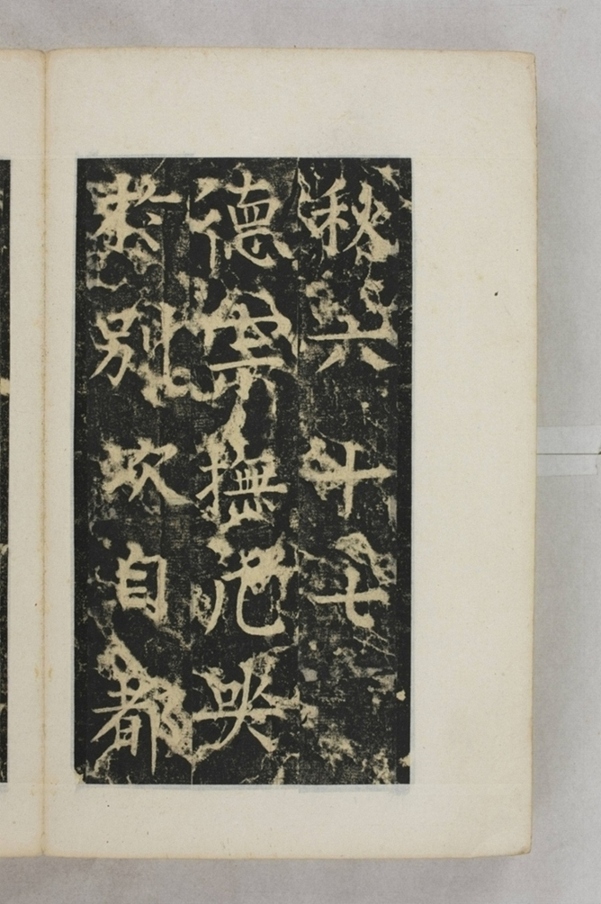 秋六十七
德宗撫厄哭
於別次自都